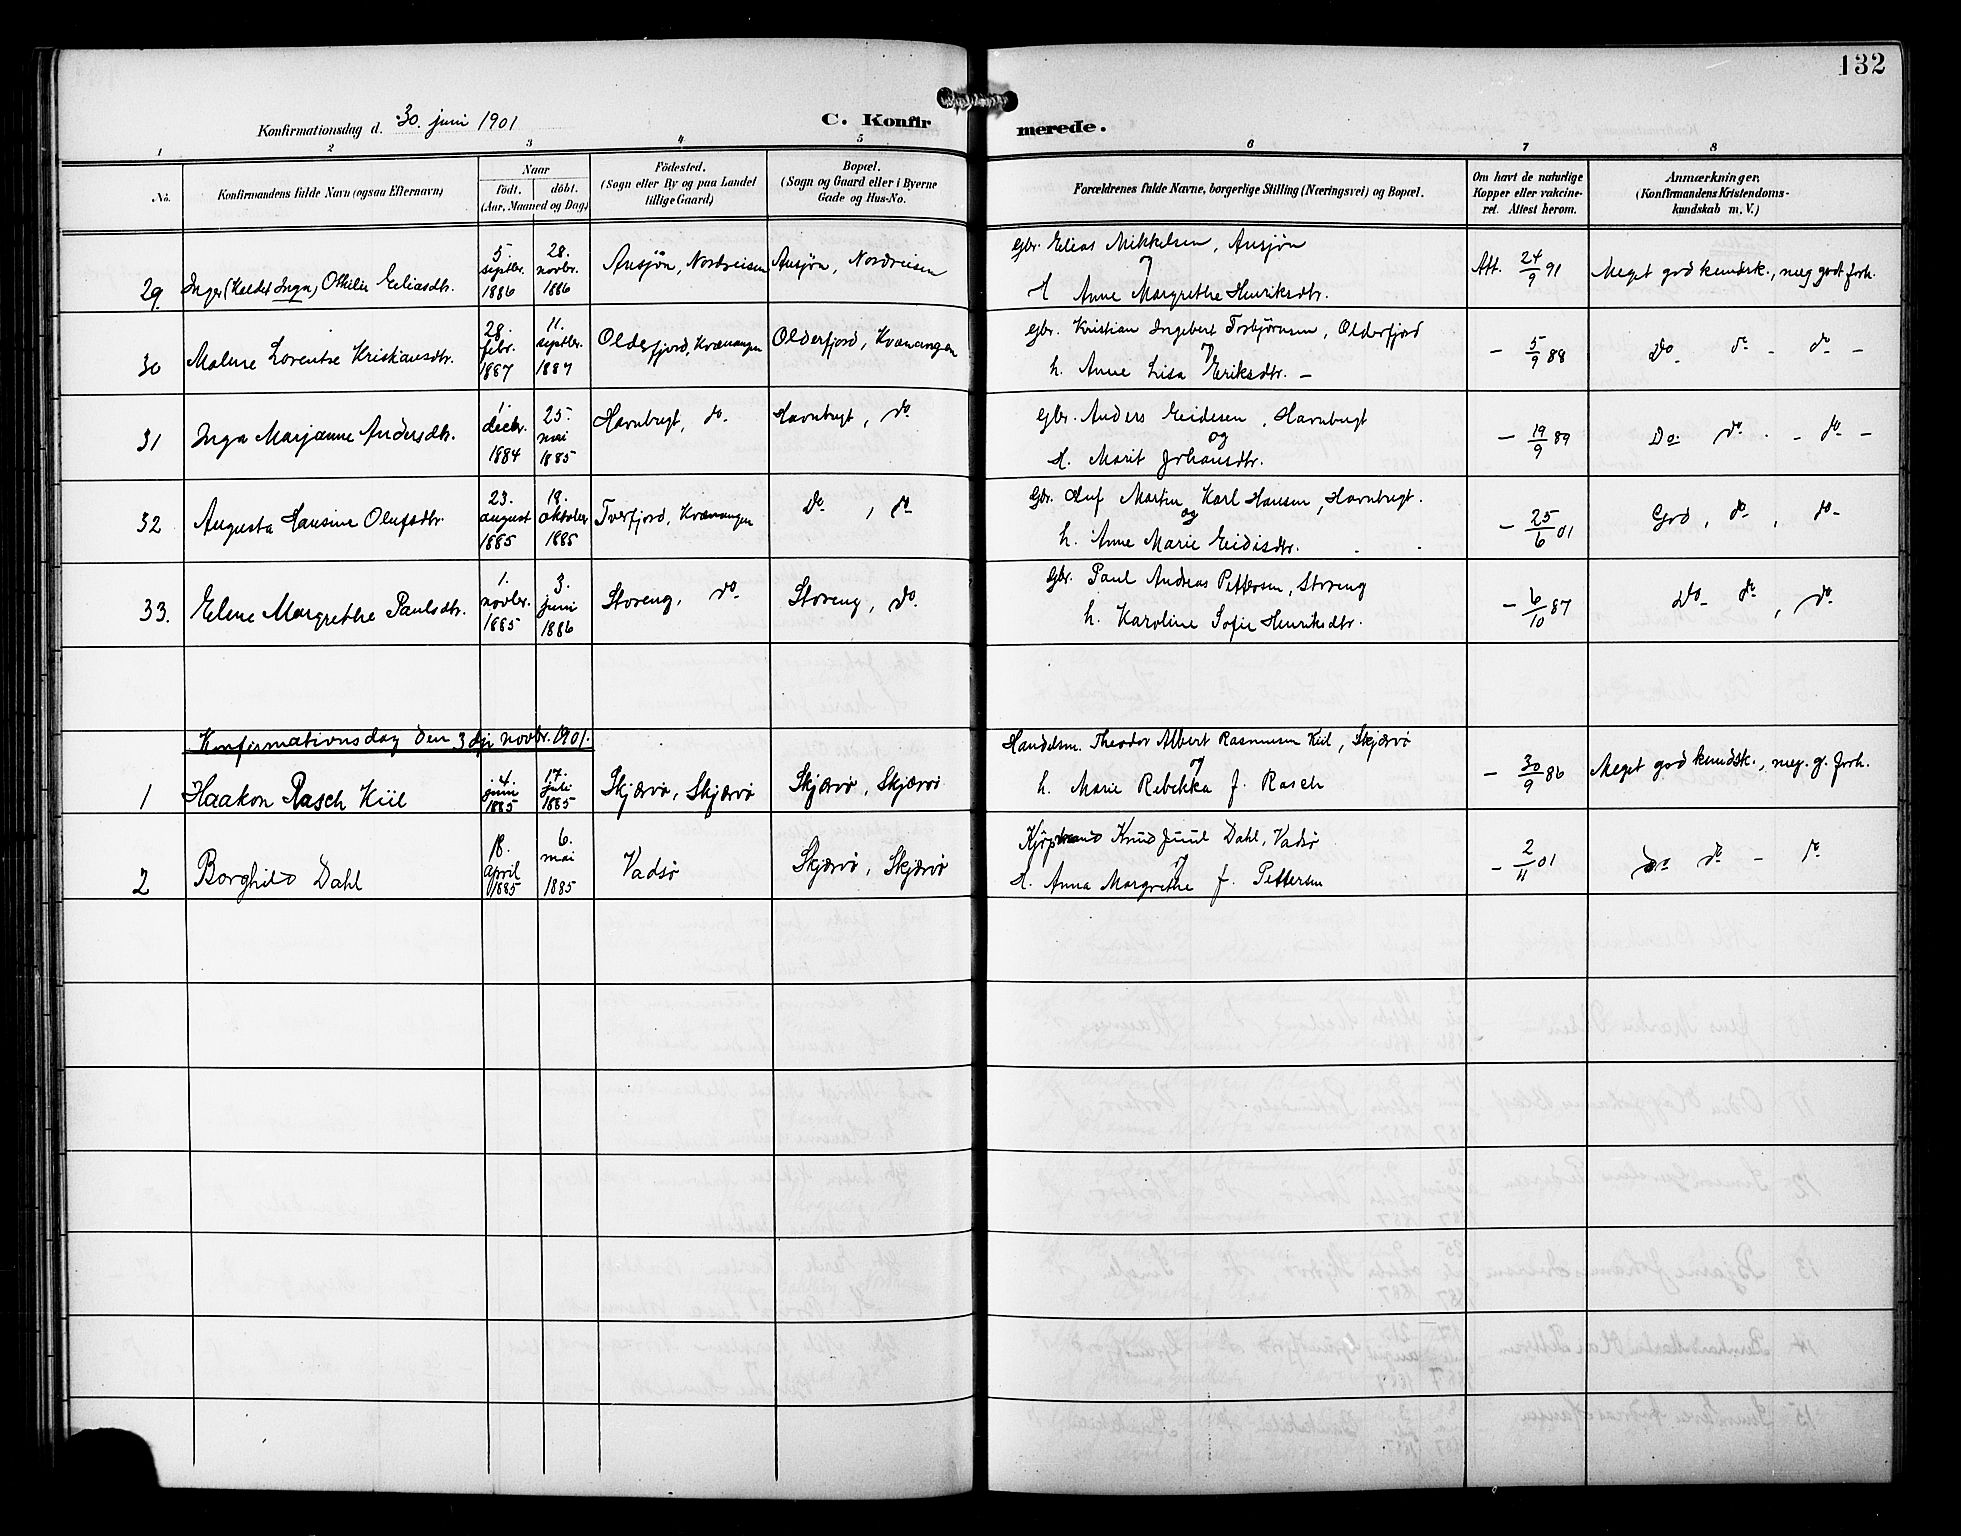 132
Konfirmationsdag d. 30. juni 1901
C. Konfirmerede.
1 2 3 4 5 6 7 8
No.
Konfirmandens fulde Navn (ogsaa Efternavn)
Naar
født. døbt.
(Aar, Maaned og Dag)
Fødested.
(Sogn eller By og paa Landet
tillige Gaard)
Bopæl.
(Sogn og Gaard eller i Byerne
Gade og Hus-No.
Forældrenes fulde Navne, borgerlige Stilling (Næringsvei) og Bopæl.
Om havt de naturlige
Kopper eller vakcine-
ret. Attest herom.
Anmærkninger.
(Konfirmandens Kristendoms-
kundskab m. V.)
29. Inger (kaldet Inga) Othilie Eliasdtr.
5. septbr. 1886
28. novbr. 1886
Ansjøn, Nordreisen
Ansjøn, Nordreisen
Gbr. Elias Mikkelsen, Ansjøn
og
H. Anne Margrethe Henriksdtr.
Att. 24/9 91
Meget god kundsk., meg godt forh.
30 Malene Lorentse Kristiansdtr.
28. febr. 1887
11. septbr. 1887
Olderfjord, Kvænangen
Olderfjord, Kvænangen
Gbr. Kristian Ingebert Torbjørnsen, Olderfjord
og
h. Anne Lisa Eriksdtr. –
– 5/9 88
Do – do – do –
31 Inga Marjanne Andersdtr.
1. decbr. 1884
25. mai 1885
Havnbugt, do
Havnbugt, do
Gbr. Anders Eidesen, Havnbugt
og
H. Marit Johansdtr.
– 19/9 89
Do. do. – do –
32 Augusta Hansine Olufsdtr.
23. august 1885
18. oktober 1885
Tverfjord, Kvænangen
Do, do
Gbr. Oluf Martin Karl Hansen, Havnbugt.
og
h. Anne Marie Eidisdtr.
– 25/6 01
God, do, do –
33. Elene Margrethe Paulsdtr.
1. novbr. 1885
3. juni 1886
Storeng, do
Storeng, do.
Gbr. Paul Andreas Pettersen, Storeng
h. Karoline Sofie Henriksdtr.
– 6/10 87
Do – do, do
Konfirmationsdag den 3dje novbr. 1901.
1 Haakon Rasch Kiil
4. juni 1885
17. juli 1885
Skjærvø, Skjærvø
Skjærvø, Skjærvø
Handelsm. Theodor Albert Rasmussen Kiil, Skjærvø
og
h. Marie Rebekka f. Rasch
– 30/9 86
Meget god kundsk., meg. g. forh.
2 Borghild Dahl
18. april 1885
6. mai 1885
Vadsø
Skjærvø, Skjærvø
Kjøpmand Knud Juul Dahl, Vadsø
og
H. Anna Margrethe f. Pettersen
– 2/11 01
Do do – do